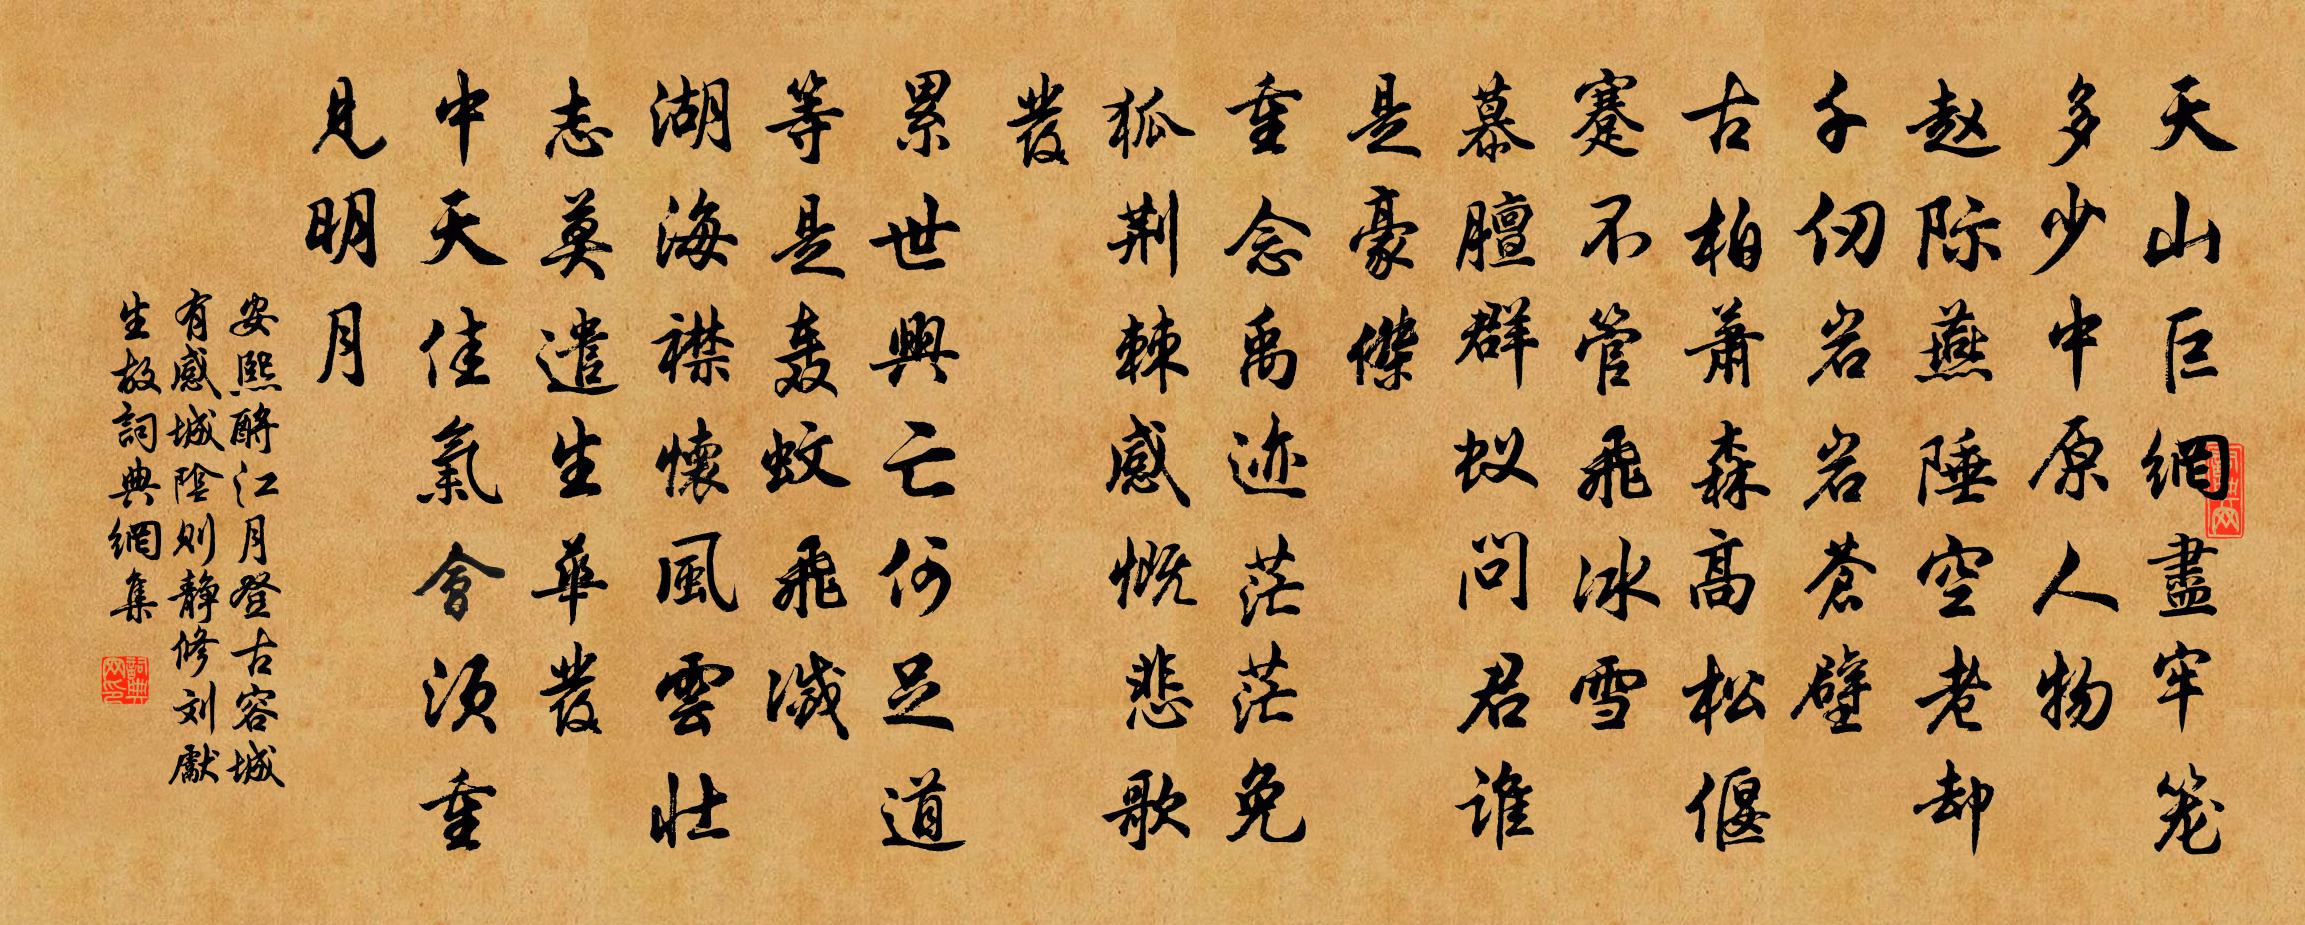 天山巨網盡牢笼
多少中原人物
赵际燕陲空老却
千仞岩岩蒼壁
古柏萧森高松偃
蹇不管飛冰雪
慕膻群蚁问君谁
是豪傑
重念禹迹茫茫兔
狐荆棘感慨悲歌
發
累世興亡何足道
等是轰蚊飛滅
湖海襟懷風雲壮
志莫遣生華發
中天佳氣會須重
見明月
安熙酹江月登古容城
有感城陰则静修刘獻
生故詞典網集